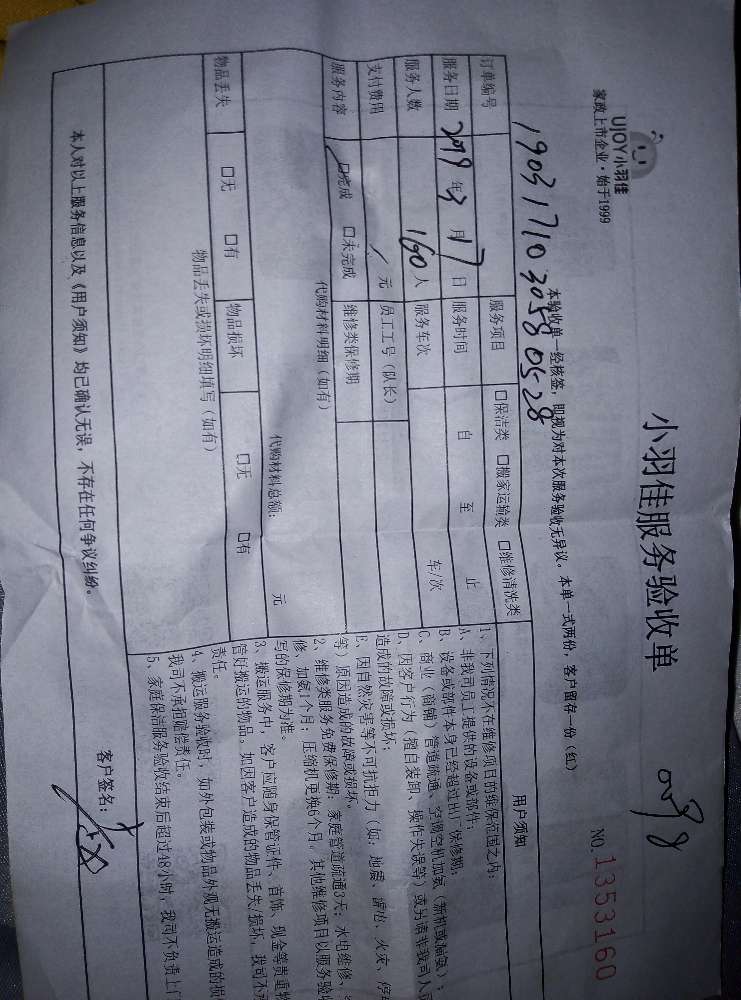 UJOY小羽佳
家政上市企业·始于1999
小羽佳服务验收单
NO.1353160
本验收单一经核签，即视为对本次服务验收无异议。本单一式两份，客户留存一份（红）
订单编号 1903171030580528
服务项目 □保洁类 □搬家运输类 □维修清洗类
服务日期 2019年3月17日 服务时间 自 至 止
服务人数 人 服务车次 车/次
支付费用 160 元 员工工号（队长）
服务内容 □完成 □未完成 维修类保修期
代购材料明细（如有）
代购材料总额： 元
物品丢失 □无 □有 物品损坏 □无 □有
物品丢失或损坏明细填写（如有）
用户须知
1、下列情况不在维修项目的维保范围之内：
A、非我司员工提供的设备或部件；
B、设备或部件本身已经超过出厂保修期；
C、商业（商铺）管道疏通、空调空机加氨（新机或漏氨）；
D、因客户行为（擅自装卸、操作失误等）或另请非我司人员
造成的故障或损坏；
E、因自然灾害等不可抗拒力（如：地震、雷电、火灾、停
等）原因造成的故障或损坏。
2、维修类服务免费保修期：家庭管道疏通3天；水电维修、
修、加氨1个月；压缩机更换6个月。其他维修项目以服务验
写的保修期为准。
3、搬运服务中，客户应随身保管证件、首饰、现金等贵重物
管好搬运的物品。如因客户造成的物品丢失/损坏，我司不
责任。
4、搬运服务验收时，如外包装或物品外观无搬运造成的损
我司不承担赔偿责任。
5、家庭保洁服务验收结束后超过48小时，我司不负责上门
本人对以上服务信息以及《用户须知》均已确认无误，不存在任何争议纠纷。
客户签名：